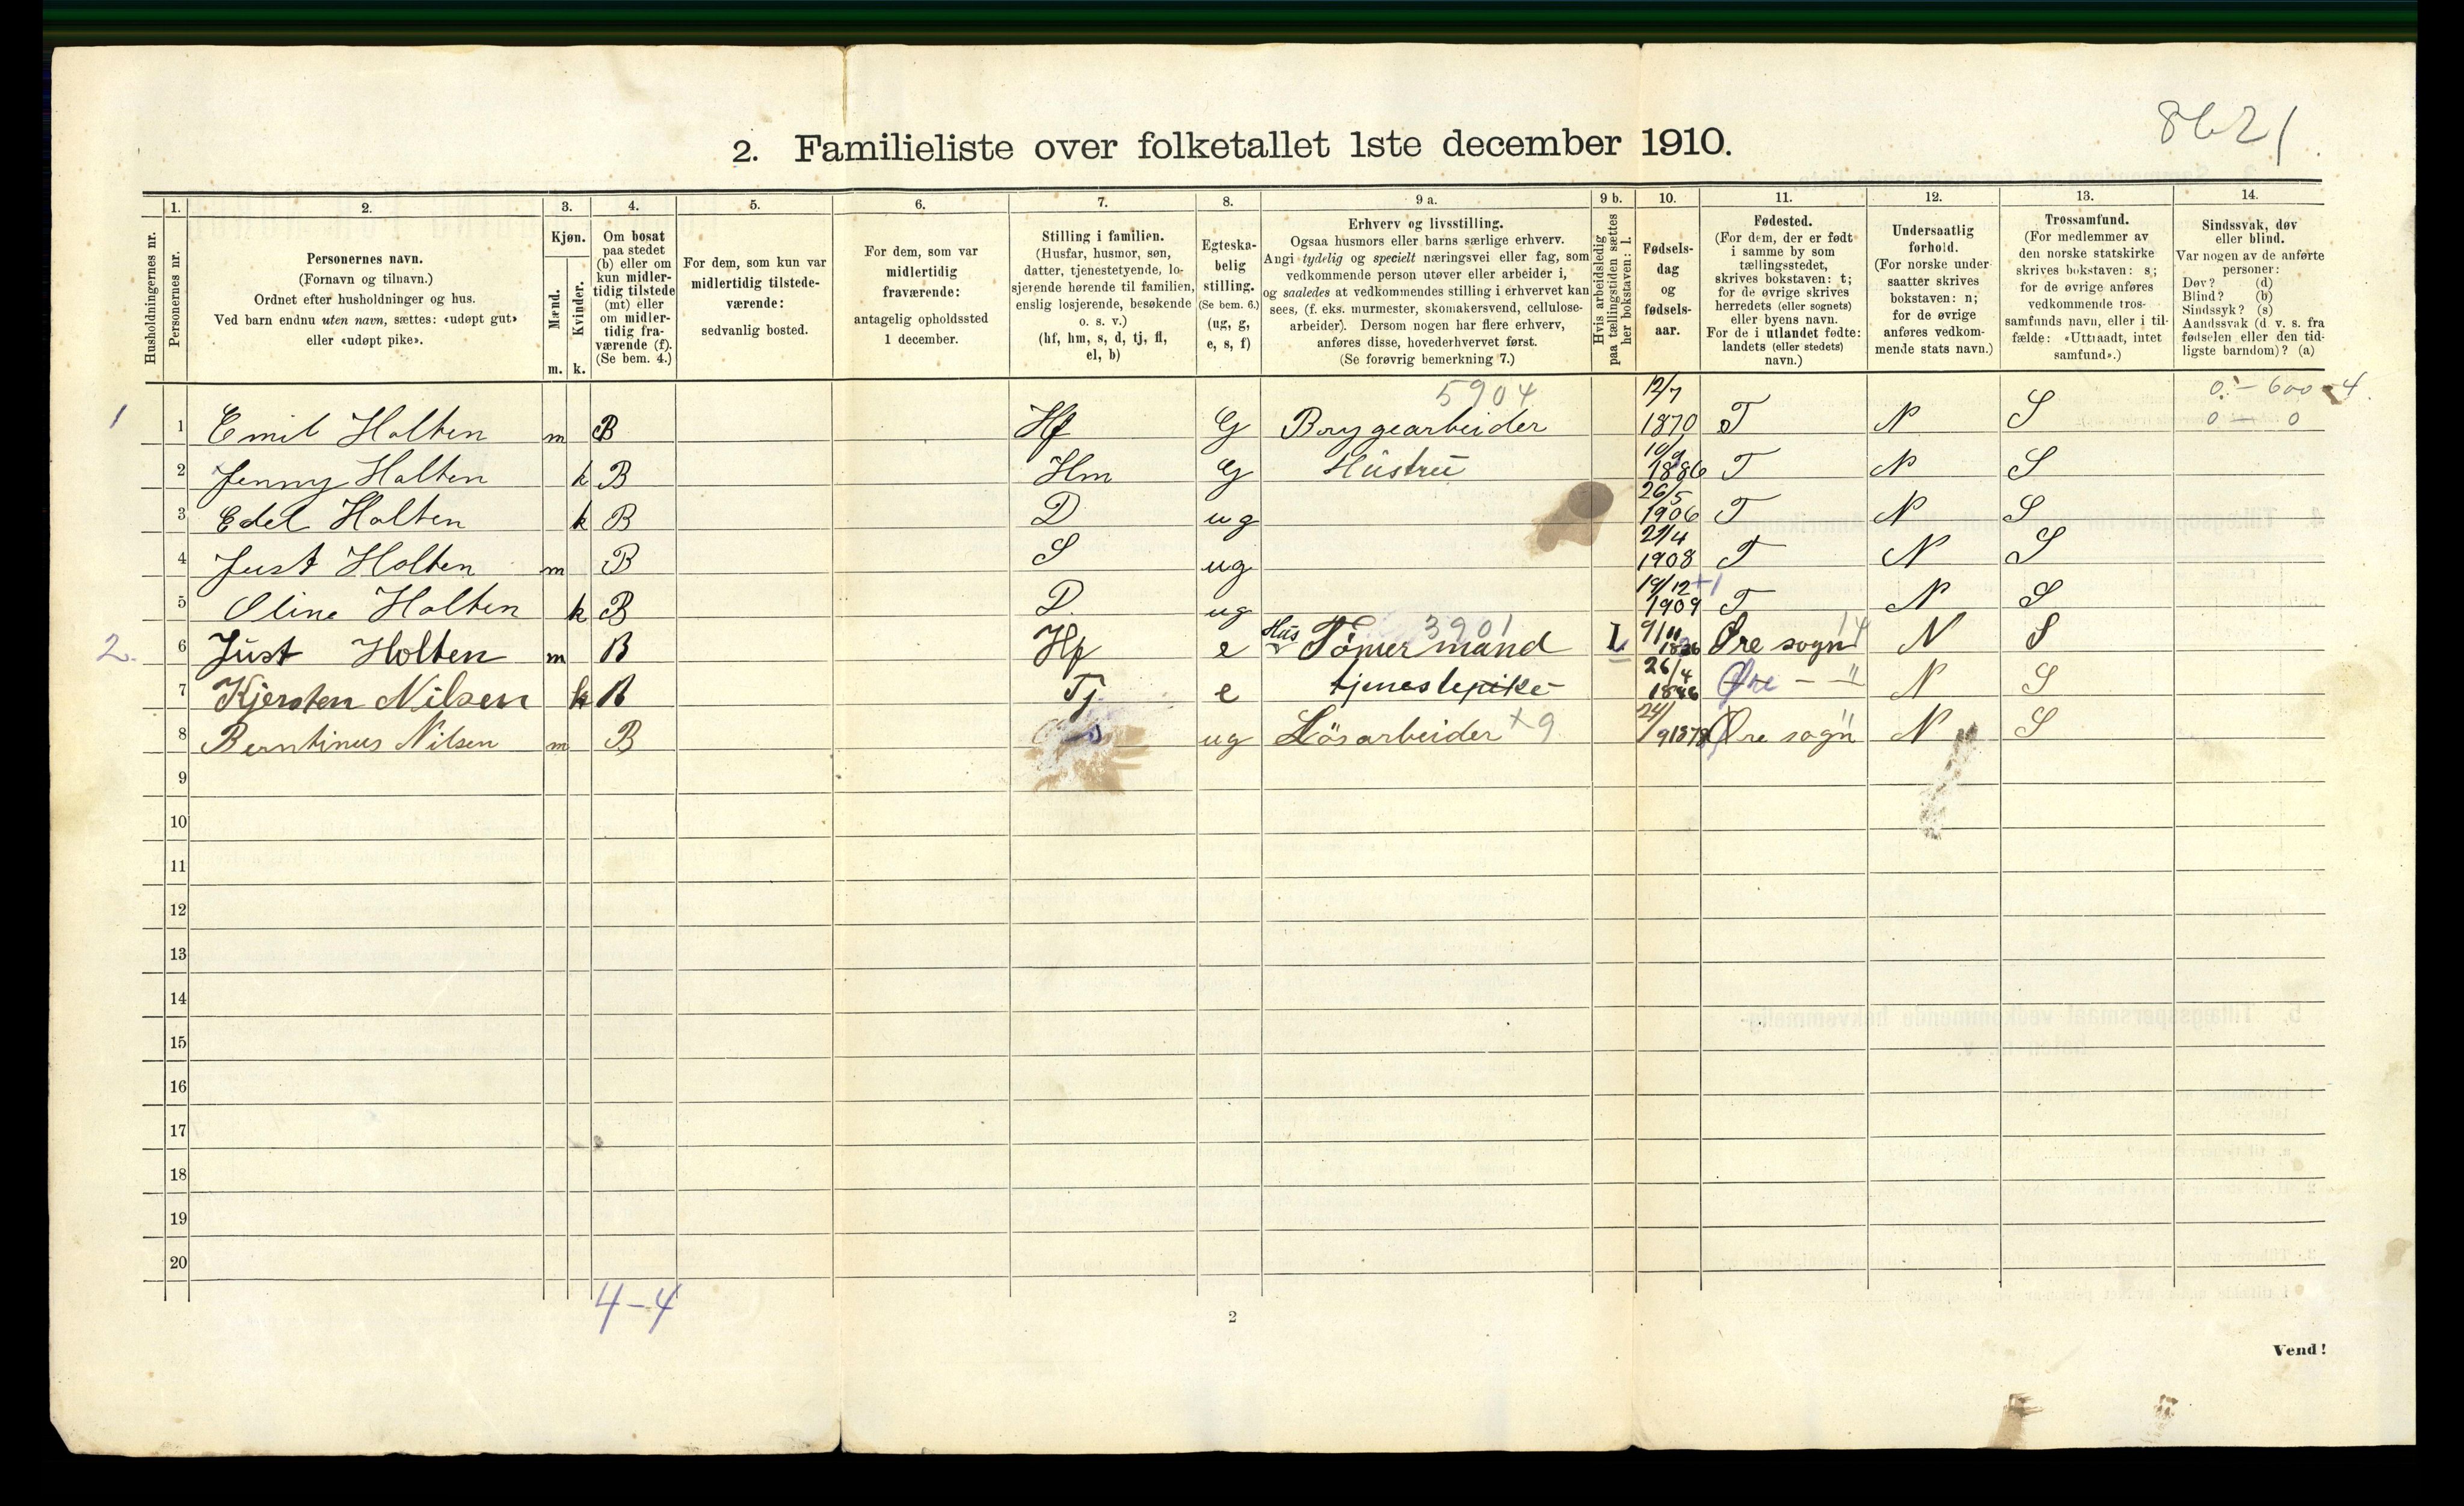 8621
2. Familieliste over folketallet 1ste december 1910.
1. 2. 3. 4. 5. 6. 7. 8. 9 a. 9 b. 10. 11. 12. 13. 14.
Husholdningernes nr.
Personernes nr.
Personernes navn.
(Fornavn og tilnavn.)
Ordnet efter husholdninger og hus.
Ved barn endnu uten navn, sættes: «udøpt gut»
eller «udøpt pike».
Kjøn.
Mænd.
Kvinder.
m. k.
Om bosat
paa stedet
(b) eller om
kun midler-
tidig tilstede
(mt) eller
om midler-
tidig fra-
værende (f).
(Se bem. 4.)
For dem, som kun var
midlertidig tilstede-
værende:
sedvanlig bosted.
For dem, som var
midlertidig
fraværende:
antagelig opholdssted
1 december.
Stilling i familien.
(Husfar, husmor, søn,
datter, tjenestetyende, lo-
sjerende hørende til familien,
enslig losjerende, besøkende
o. s. v.)
(hf, hm, s, d, tj, fl,
el, b)
Egteska-
belig
stilling.
(Se bem. 6.)
(ug, g,
e, s, f)
Erhverv og livsstilling.
Ogsaa husmors eller barns særlige erhverv.
Angi tydelig og specielt næringsvei eller fag, som
vedkommende person utøver eller arbeider i,
og saaledes at vedkommendes stilling i erhvervet kan
sees, (f. eks. murmester, skomakersvend, cellulose-
arbeider). Dersom nogen har flere erhverv,
anføres disse, hovederhvervet først.
(Se forøvrig bemerkning 7.)
Hvis arbeidsledig
paa tællingstiden sættes
her bokstaven: l.
Fødsels-
dag
og
fødsels-
aar.
Fødested.
(For dem, der er født
i samme by som
tællingsstedet,
skrives bokstaven: t;
for de øvrige skrives
herredets (eller sognets)
eller byens navn.
For de i utlandet fødte:
landets (eller stedets)
navn.)
Undersaatlig
forhold.
(For norske under-
saatter skrives
bokstaven: n;
for de øvrige
anføres vedkom-
mende stats navn.)
Trossamfund.
(For medlemmer av
den norske statskirke
skrives bokstaven: s;
for de øvrige anføres
vedkommende tros-
samfunds navn, eller i til-
fælde: «Uttraadt, intet
samfund».)
Sindssvak, døv
eller blind.
Var nogen av de anførte
personer:
Døv? (d)
Blind? (b)
Sindssyk? (s)
Aandssvak (d. v. s. fra
fødselen eller den tid-
ligste barndom)? (a)
5904 12/7 0.- 600 - 4.
1 1 Emil Holten m B Hf G Bryggearbeider 1870 T N S 0 — 0
2 Jenny Holten k B Hm G Hústrú 1886 T N S
3 Edel Holten k B D ug 26/5 1906 T N S
4 Just Holten m B S ug 21/4 1908 T N S
5 Oline Holten k B D ug 19/12 +1 1909 T N S
3901 14
2. 6 Just Holten m B Hf e Hus Tømermand L 9/11 1836 Øre sogn N S
7 Kjersten Nilsen k B Tj e tjenestepike 26/4 1846 Øre — " N S
8 Berntinus Nilsen m B s ug Løsarbeider +9 24/9 1878 Øre sogn N S
9
10
11
12
13
14
15
16
17
18
19
20
4-4
2
Vend!